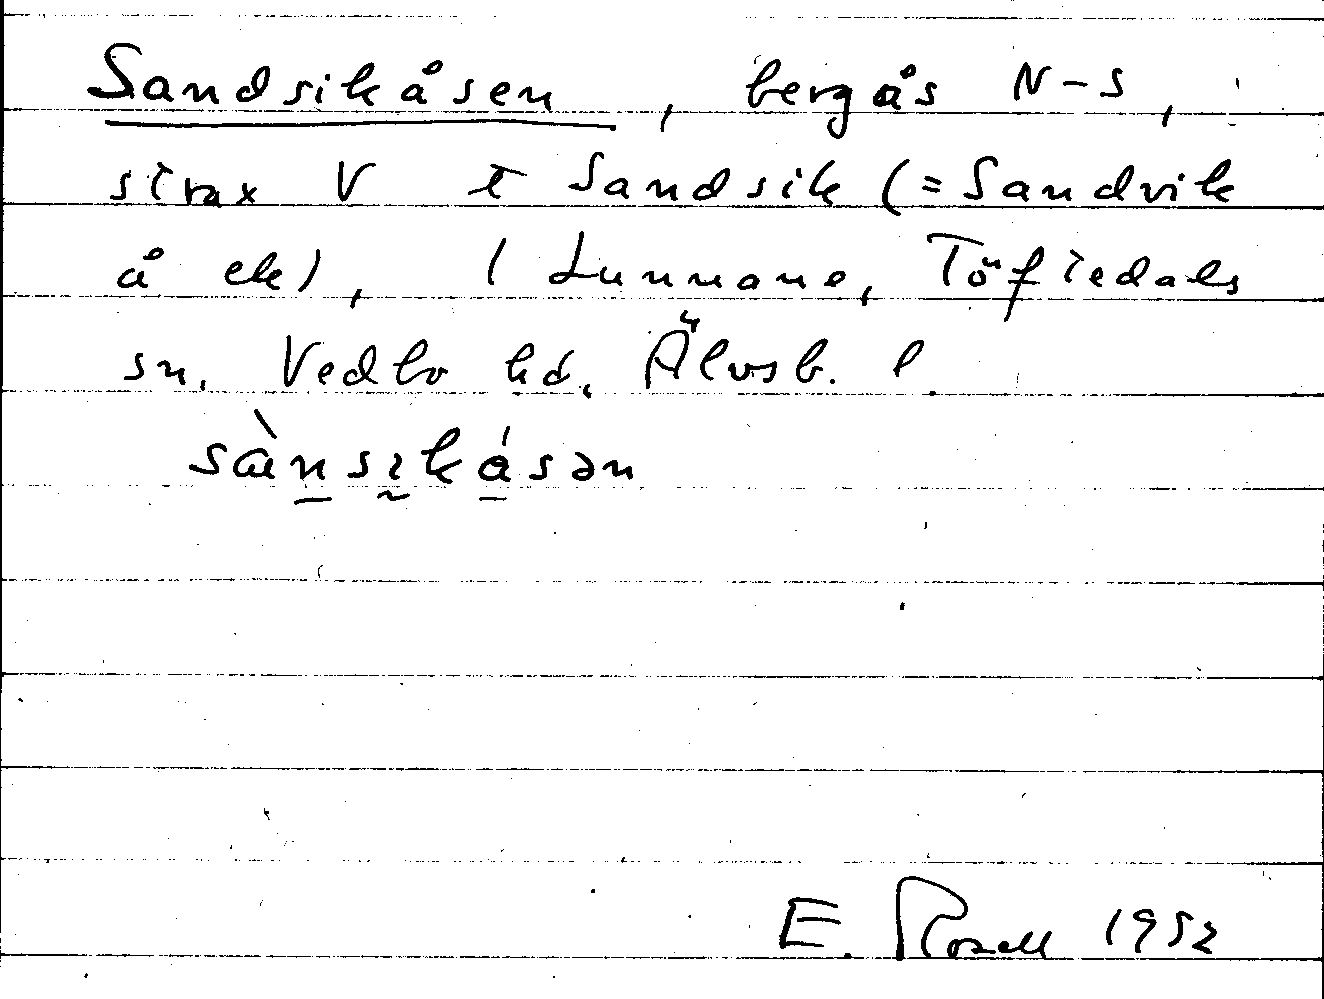 Sandsikåsen, bergås N-S,
strax V t Sandsik (=Sandvik
å ek), i Lunnane, Töftedals
sn. Vedbo hd. Älvsb. l.
sæ̀nsɩkåsən
E. Rosell 1952